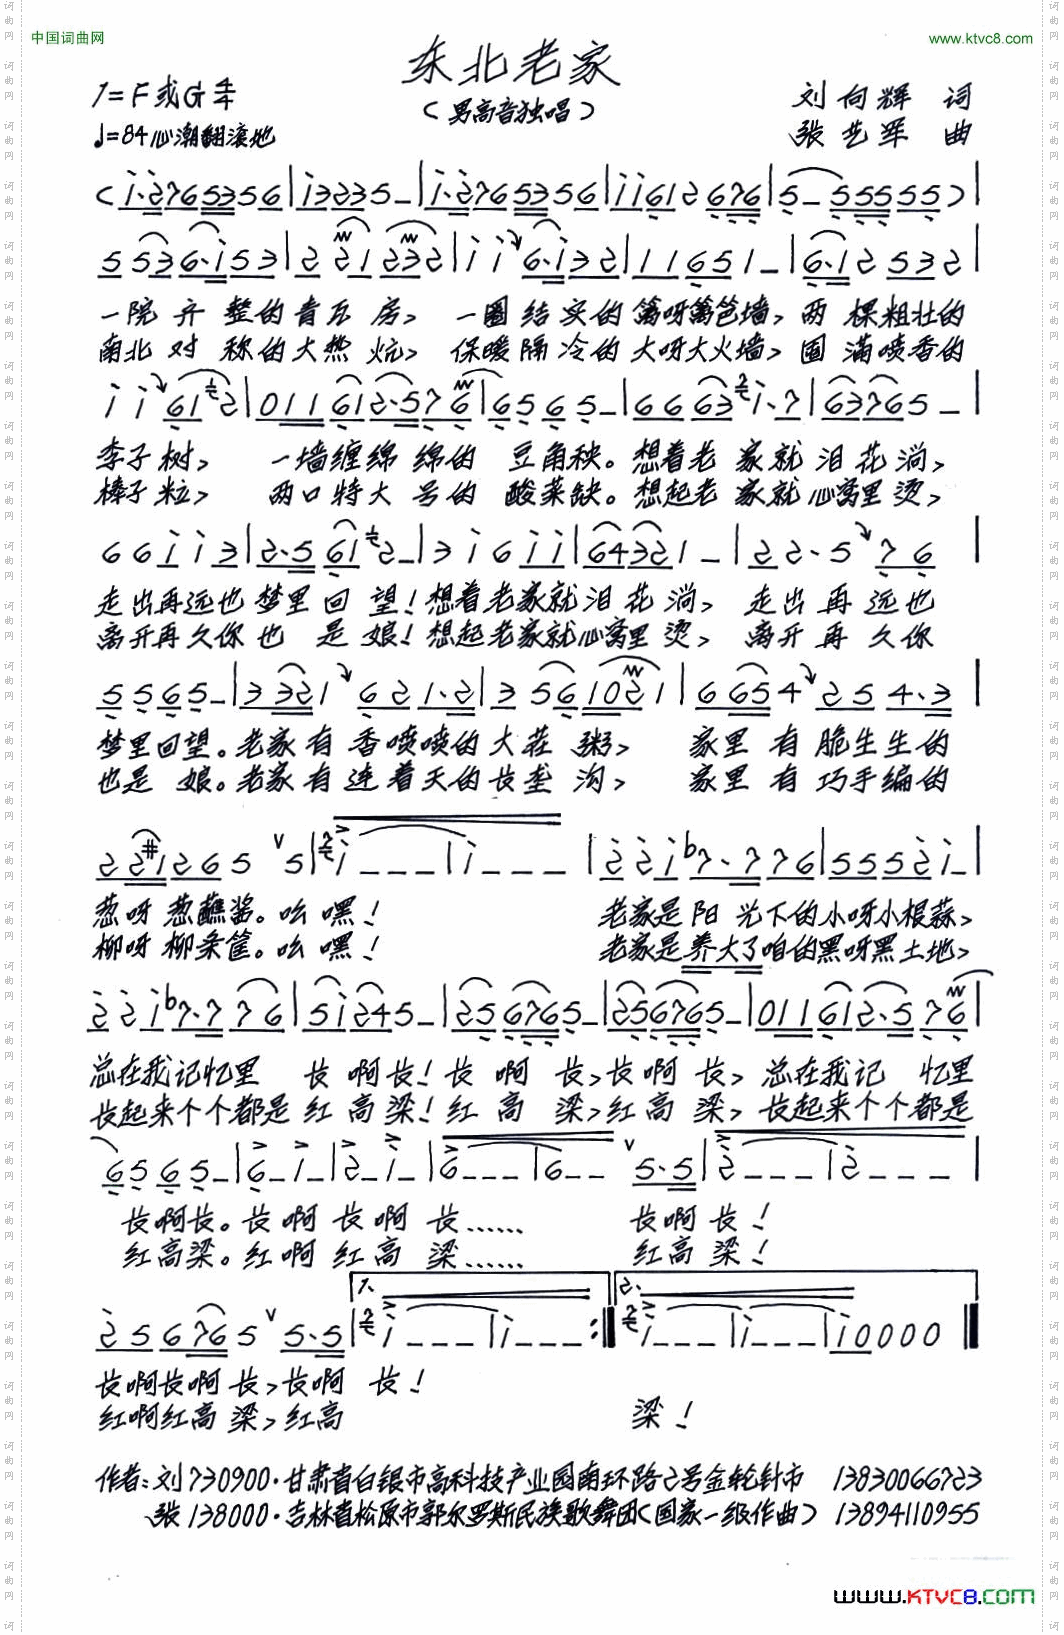 中国词曲网
www.ktvc8.com
东北老家
(男高音独唱)
1=F或G 4/4
♩=84心潮翻滚地
刘向辉 词
张艺军 曲
一院齐整的青瓦房, 一圈结实的篱呀篱笆墙, 两棵粗壮的
南北对称的大热炕, 保暖隔冷的大呀大火墙, 囤满喷香的
李子树, 一墙缠绵绵的豆角秧。想着老家就泪花淌,
榛子粒, 两口特大号的酸菜缸。想起老家就心窝里烫,
走出再远也梦里回望!想着老家就泪花淌, 走出再远也
离开再久你也是娘!想起老家就心窝里烫, 离开再久你
梦里回望。老家有香喷喷的大茬粥, 家里有脆生生的
也是娘。老家有连着天的长垄沟, 家里有巧手编的
葱呀葱蘸酱。吆嘿!
柳呀柳条筐。吆嘿!
老家是阳光下的小呀小根蒜,
老家是养大了咱的黑呀黑土地,
总在我记忆里 长啊长!长啊长,长啊长, 总在我记忆里
长起来个个都是红高粱!红高粱,红高粱, 长起来个个都是
长啊长。长啊长啊长…… 长啊长!
红高粱。红啊红高粱…… 红高粱!
长啊长啊长,长啊长!
红啊红高粱,红高 粱!
作者:刘730900·甘肃省白银市高科技产业园南环路2号金轮针市 13830066723
张138000·吉林省松原市郭尔罗斯民族歌舞团(国家一级作曲) 13894110955
www.KTVC8.com